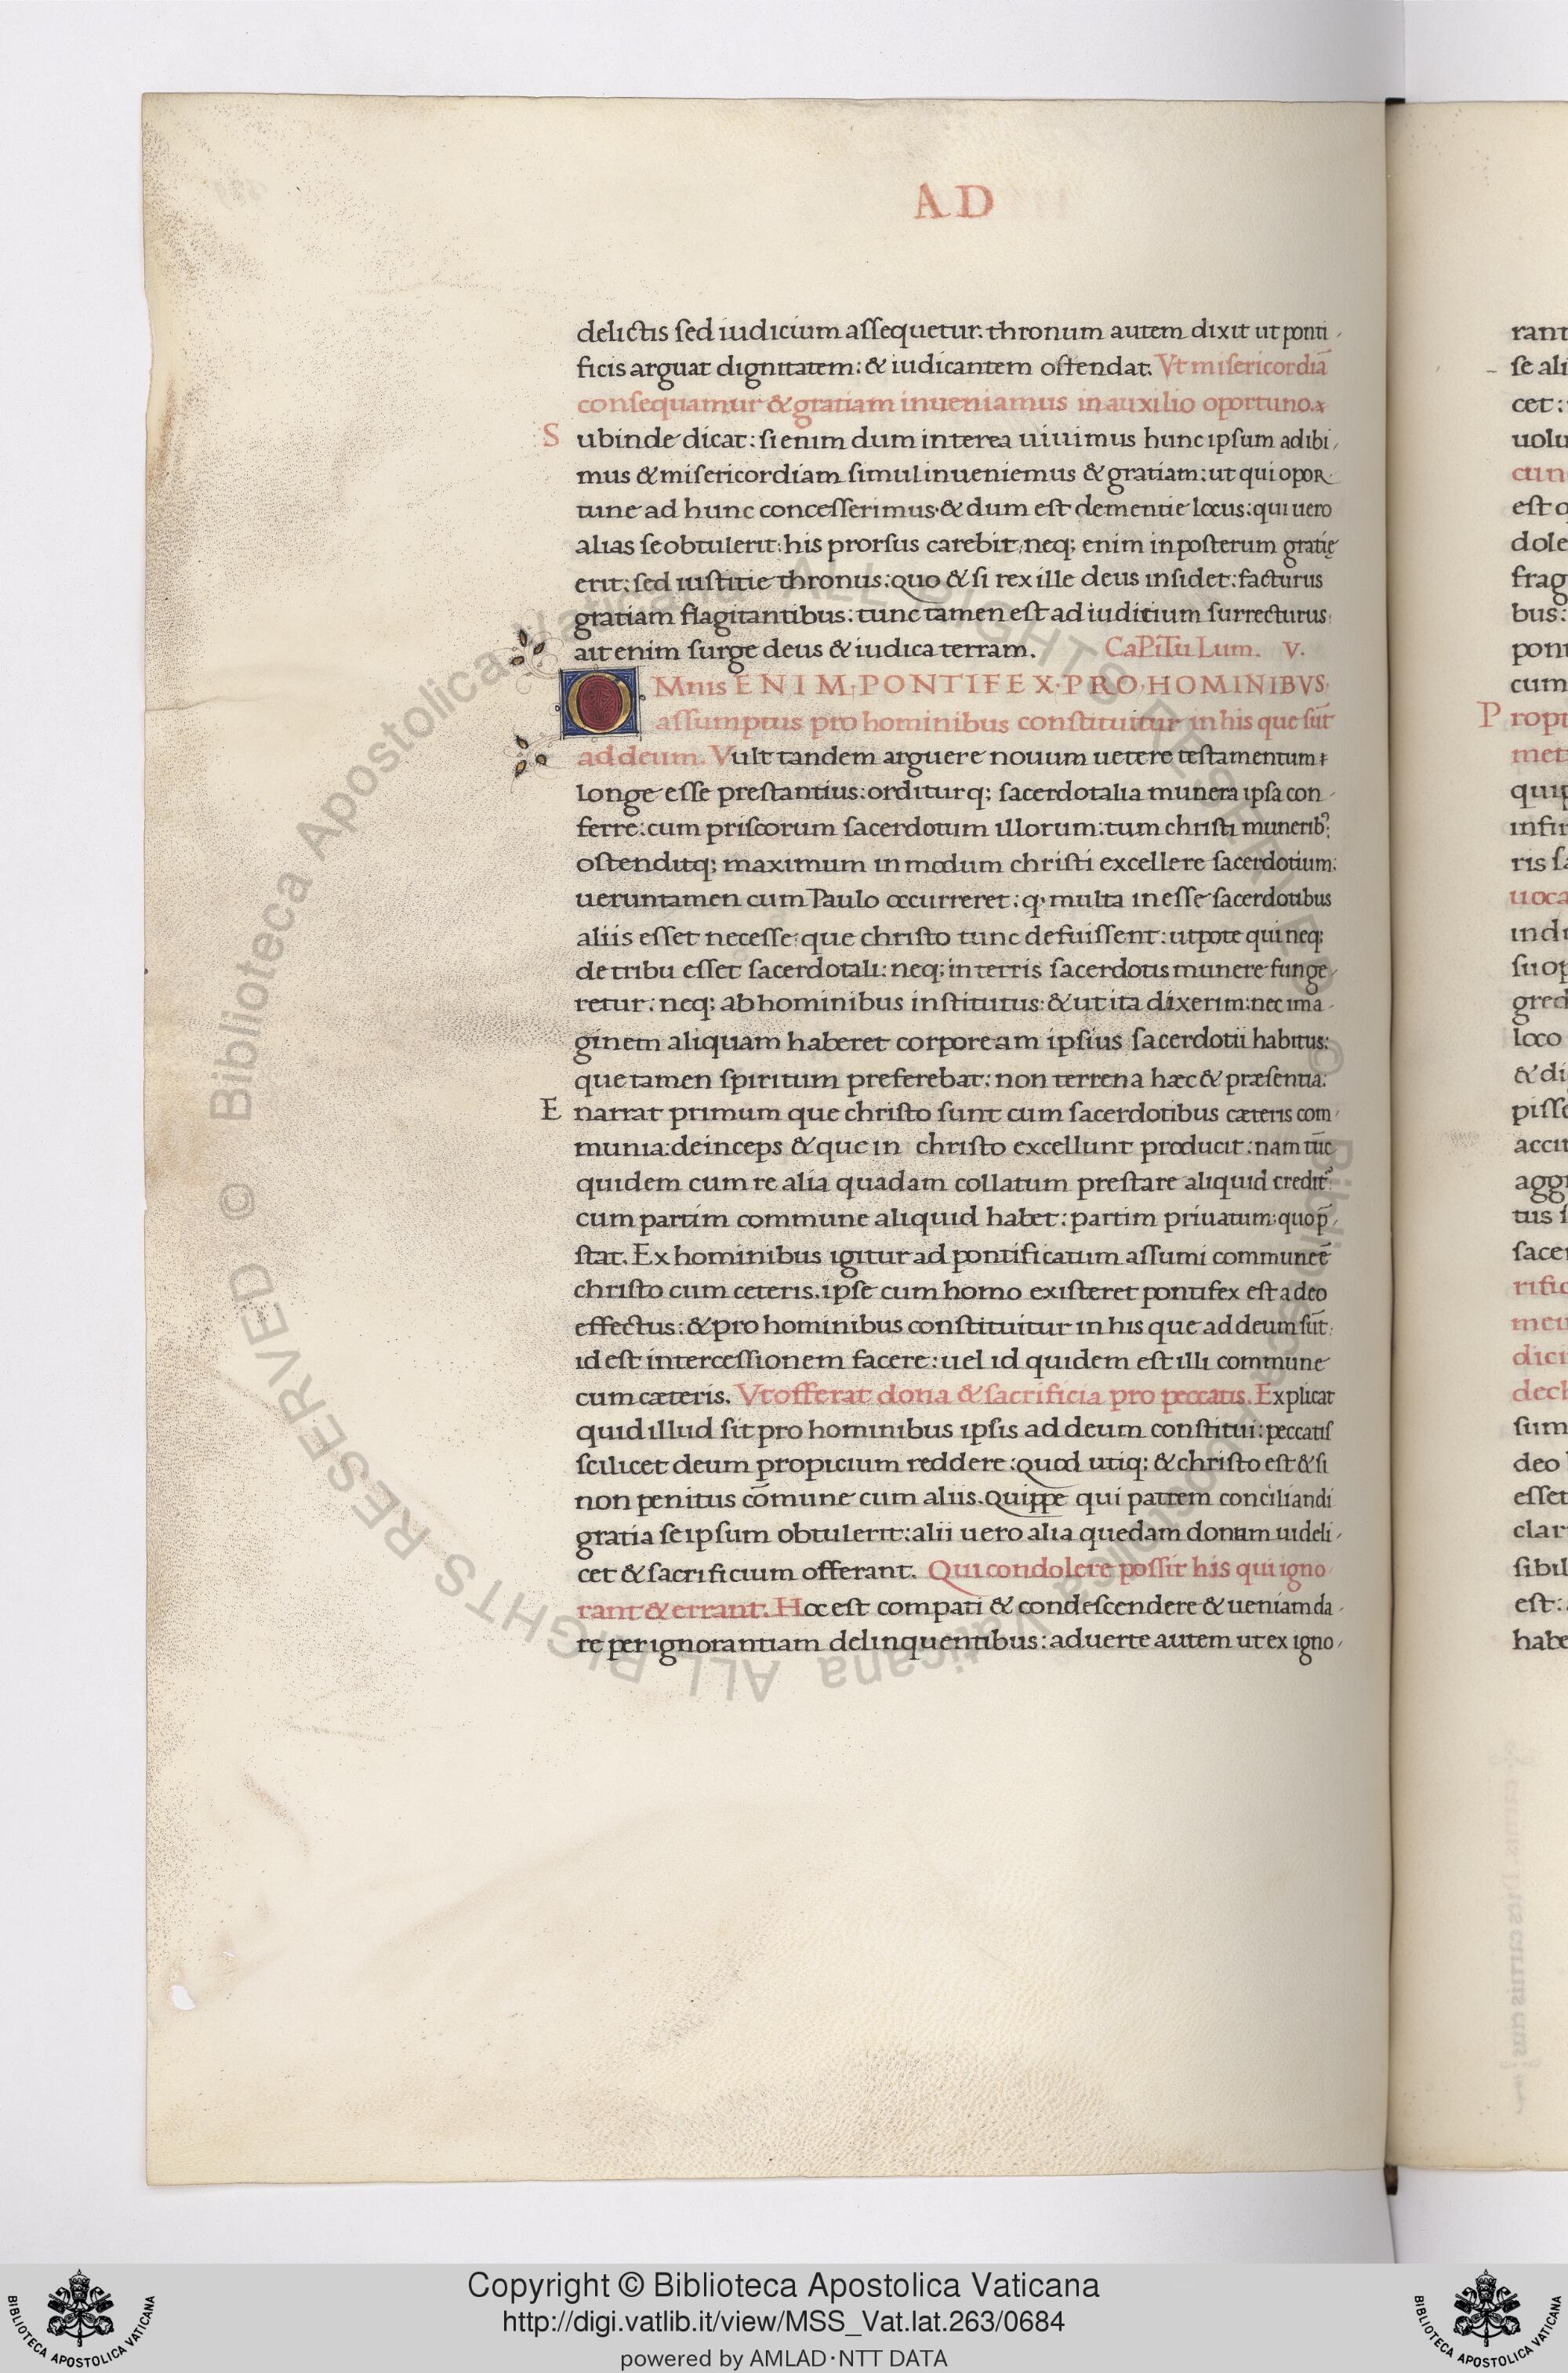 AD
delictis sed iudicium assequetur. thronum autem dixit ut ponti
ficis arguat dignitatem: & iudicantem ostendat. Vt misericordiã
consequamur & gratiam inueniamus in auxilio oportuno.
Subinde dicat: si enim dum interea uiuimus hunc ipsum adibi
mus & misericordiam simul inueniemus & gratiam: ut qui opor
tune ad hunc concesserimus. & dum est clementie locus: qui uero
alias se obtulerit: his prorsus carebit, neq; enim in posterum gratię
erit: sed iustitie thronus: quo & si rex ille deus insidet: facturus
gratiam flagitantibus: tunc tamen est ad iuditium surrecturus
ait enim surge deus & iudica terram. CaPiTuLum. V.
OMnis ENIM PONTIFEX PRO HOMINIBVS
assumptus pro hominibus constituitur in his que sũt
ad deum. Vult tandem arguere nouum uetere testamentum
longe esse prestantius: orditurq; sacerdotalia munera ipsa con
ferre: cum priscorum sacerdotum illorum: tum christi munerib⁹:
ostenditq; maximum in modum christi excellere sacerdotium:
ueruntamen cum Paulo occurreret: q multa inesse sacerdotibus
aliis esset necesse: que christo tunc defuissent: utpote qui neq;
de tribu esset sacerdotali: neq; in terris sacerdotis munere funge
retur: neq; ab hominibus institutus: & ut ita dixerim: nec ima
ginem aliquam haberet corpoream ipsius sacerdotii habitus:
que tamen spiritum preferebat: non terrena hæc & præsentia:
Enarrat primum que christo sunt cum sacerdotibus cæteris com
munia: deinceps & que in christo excellunt producit: nam tũc
quidem cum re alia quadam collatum prestare aliquid credit᷑:
cum partim commune aliquid habet: partim priuatum: quo p̄
stat. Ex hominibus igitur ad pontificatum assumi commune ē
christo cum ceteris. ipse cum homo existeret pontifex est a deo
effectus: & pro hominibus constituitur in his que ad deum sũt:
id est intercessionem facere: uel id quidem est illi commune
cum cæteris. Vt offerat dona & sacrificia pro peccatis. Explicat
quid illud sit pro hominibus ipsis ad deum constitui: peccatis
scilicet deum propicium reddere: quod utiq; & christo est & si
non penitus cõmune cum aliis. Quippe qui patrem conciliandi
gratia se ipsum obtulerit: alii uero alia quedam donum uideli
cet & sacrificium offerant. Qui condolere possit his qui igno
rant & errant. Hoc est compati & condescendere & ueniam da
re per ignorantiam delinquentibus: aduerte autem ut ex igno
Copyright © Biblioteca Apostolica Vaticana
http://digi.vatlib.it/view/MSS_Vat.lat.263/0684
powered by AMLAD·NTT DATA